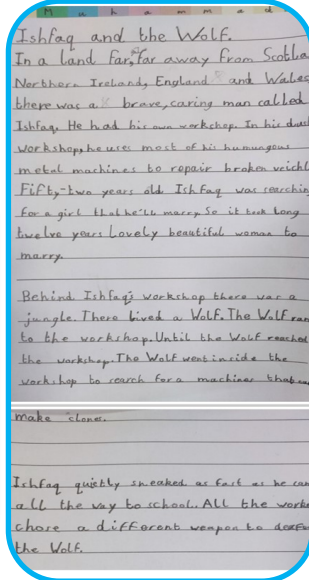 M u h a m m a d
Ishfaq and the Wolf.
In a land far, far away from Scotla
Northern Ireland, England and Wales
there was a brave, caring man called
Ishfaq. He had his own workshop. In his dus
workshop, he uses most of his humungous
metal machines to repair broken veichl
Fifty-two years old Ishfaq was searchin
for a girl that he'll marry. So it took long
twelve years Lovely beautiful woman to
marry.
Behind Ishfaq's workshop there was a
jungle. There lived a Wolf. The Wolf ran
to the workshop. Until the Wolf reached
the workshop. The Wolf went inside the
workshop to search for a machines that
make clones.
Ishfaq quietly sneaked as fast as he can
all the way to school. All the worke
chose a different weapon to
the Wolf.